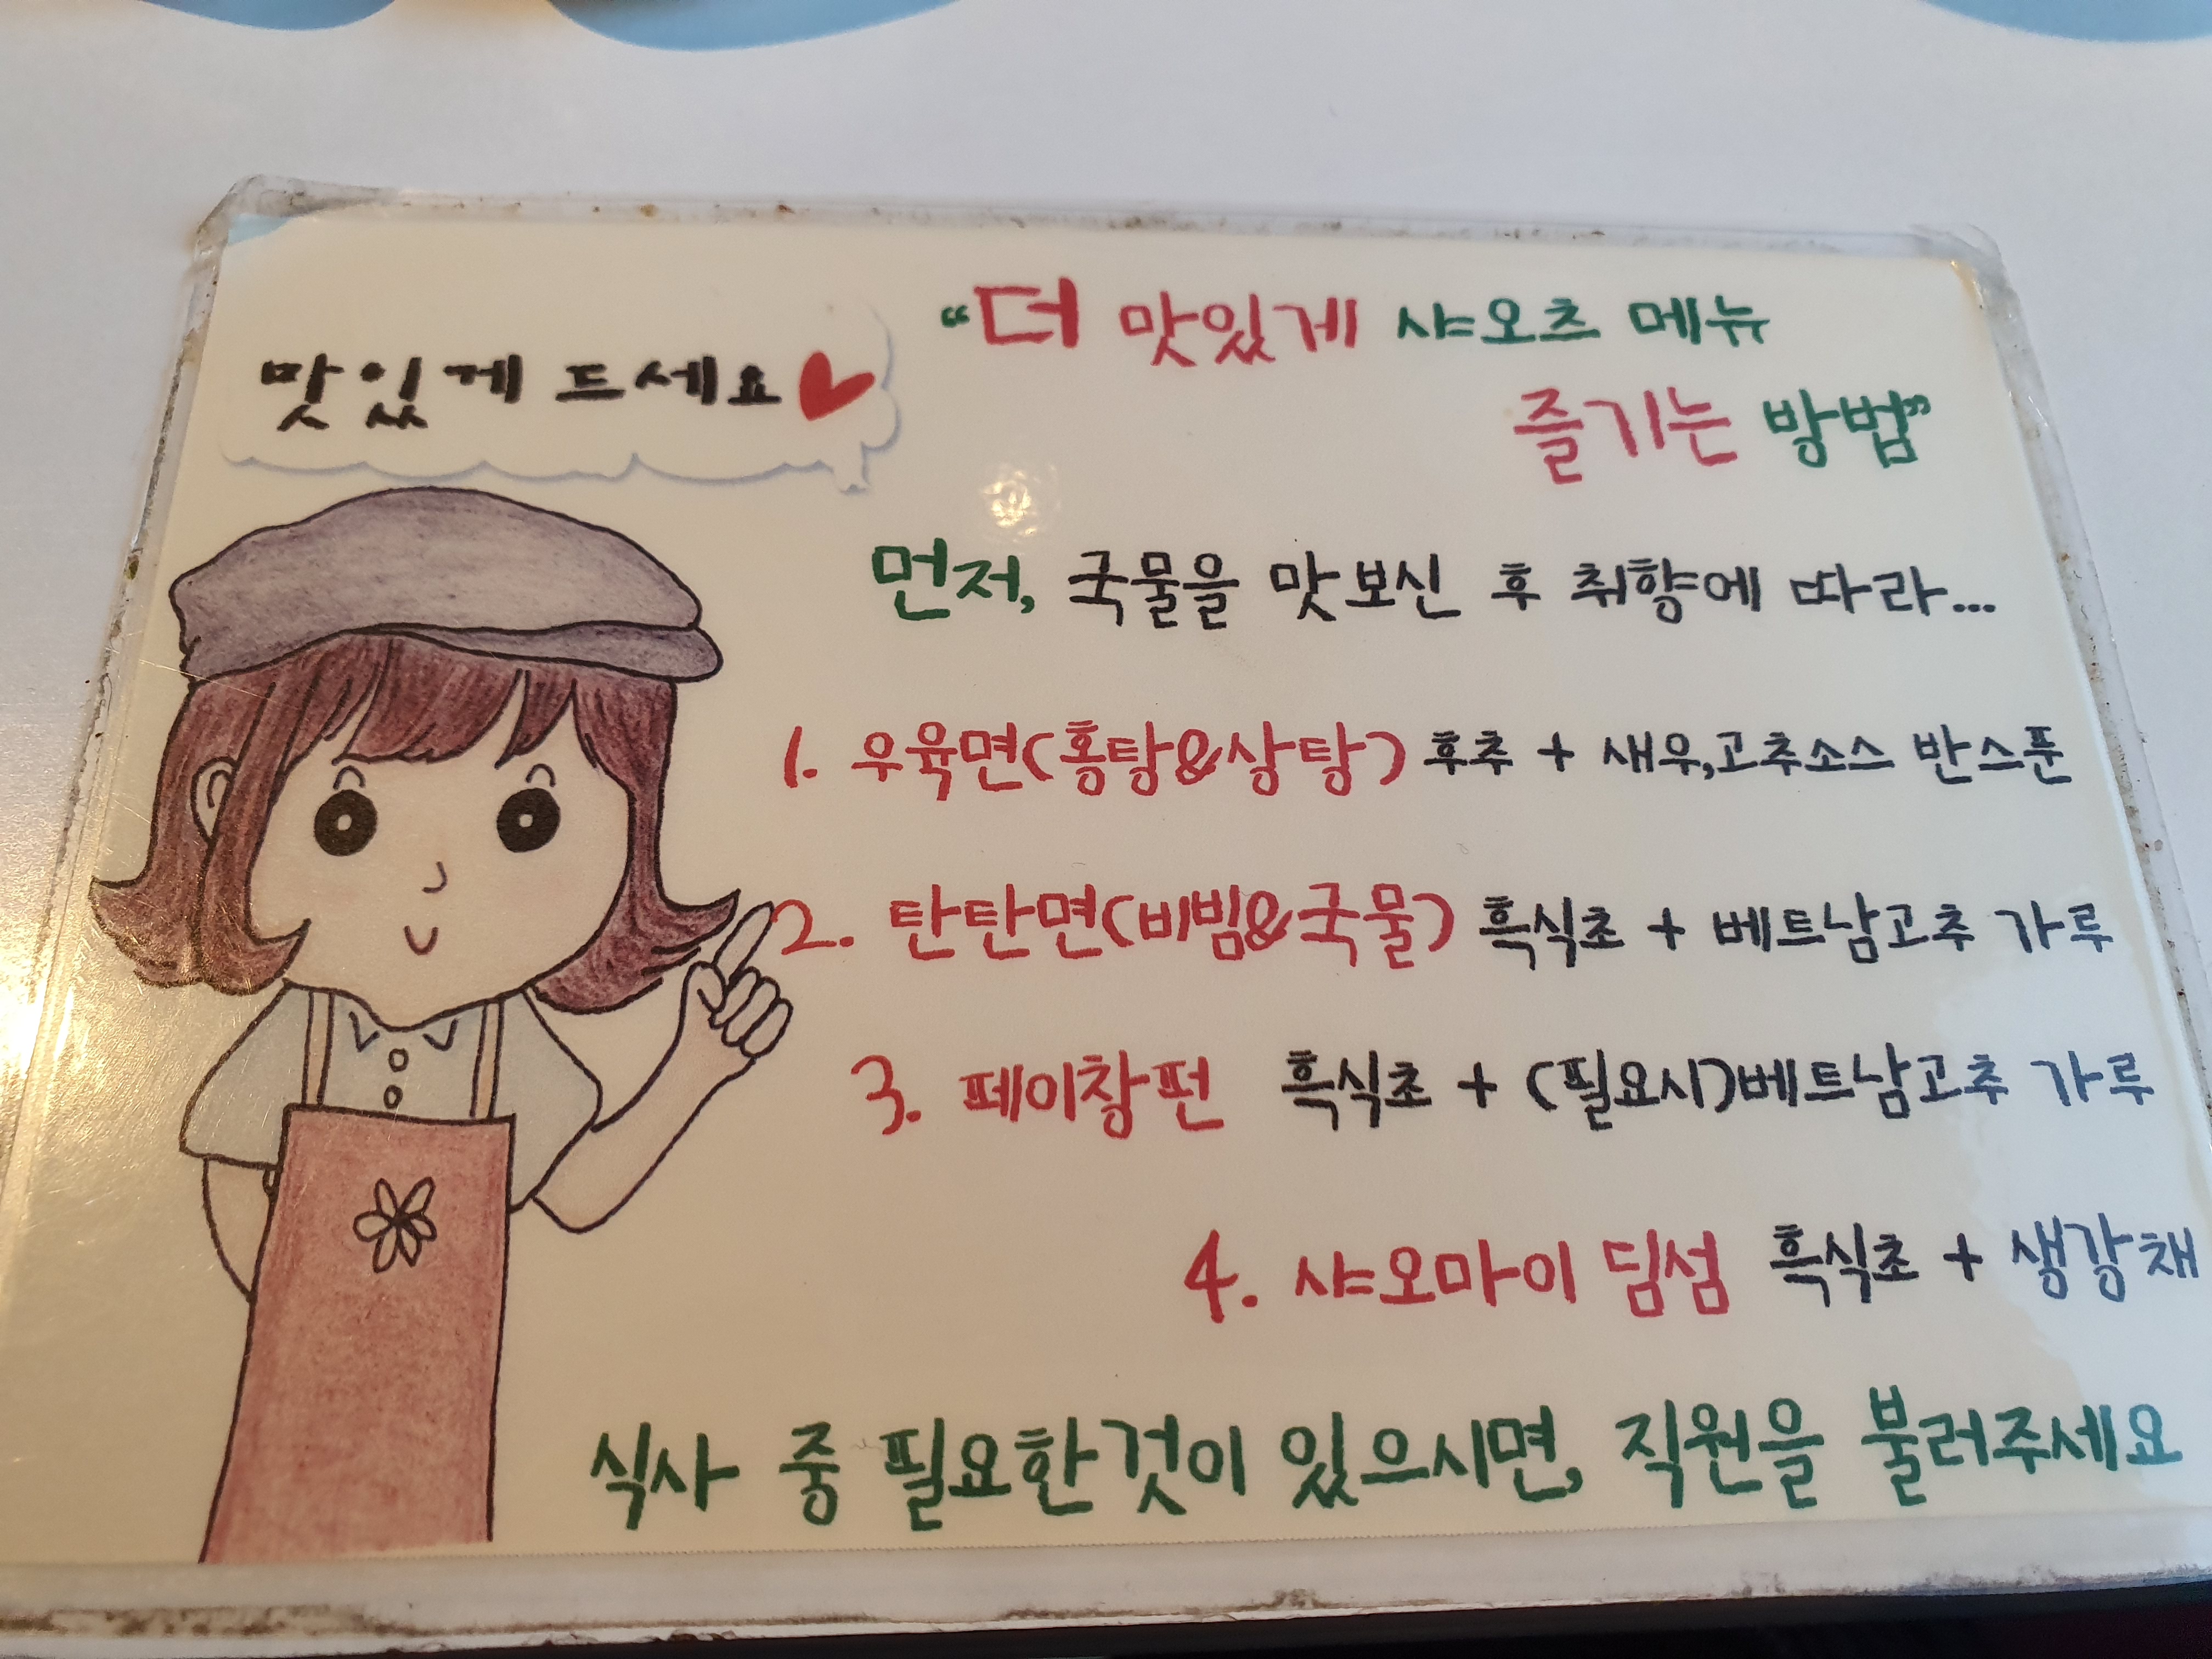 맛있게 드세요
"더 맛있게 샤오츠 메뉴
즐기는 방법"
먼저, 국물을 맛보신 후 취향에 따라...
1. 우육면(홍탕&상탕) 후추 + 새우,고추소스 반스푼
2. 탄탄면(비빔&국물) 흑식초 + 베트남고추 가루
3. 페이창펀 흑식초 + (필요시)베트남고추 가루
4. 샤오마이 딤섬 흑식초 + 생강채
식사 중 필요한것이 있으시면, 직원을 불러주세요